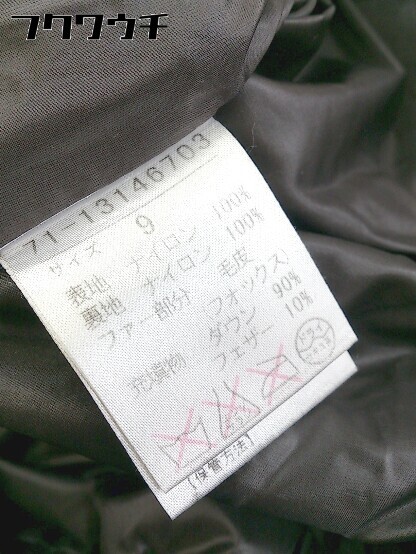 フクワウチ
71-13146703
サイズ 9
表地 ナイロン 100%
裏地 ナイロン 100%
ファー部分 毛皮
(フォックス)
充填物 ダウン 90%
フェザー 10%
ドライ
【保管方法】